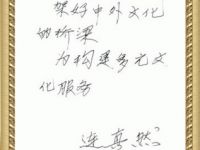 架好中外文化
的桥梁
为构建多元文
化服务
连真然